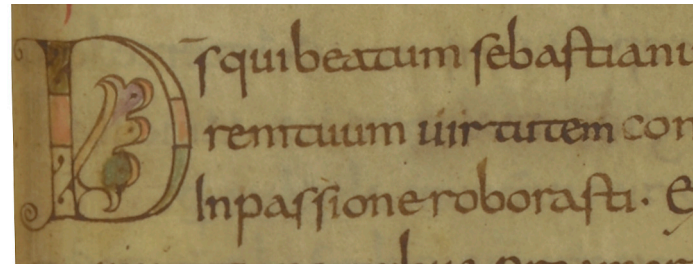 D̄s qui beatum sebastianu
rem tuum uirtutem con
In passione roborasti. E